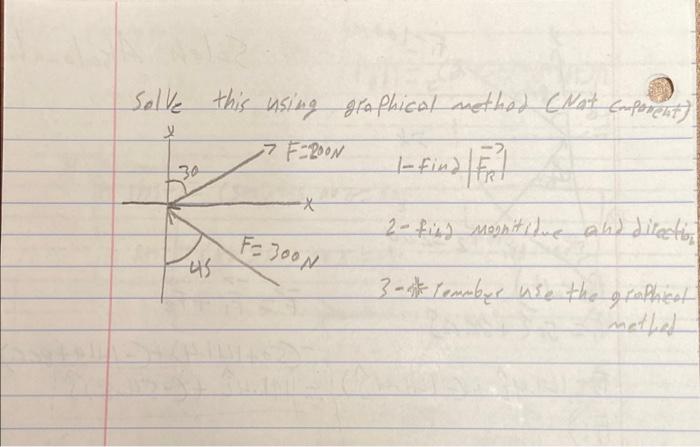 Solve this using graphical method (Not Component)
y
30
F=200N
1- find |F⃗R|
x
2- find magnitude and direction
F=300N
45
3-* remmber use the graphical
method